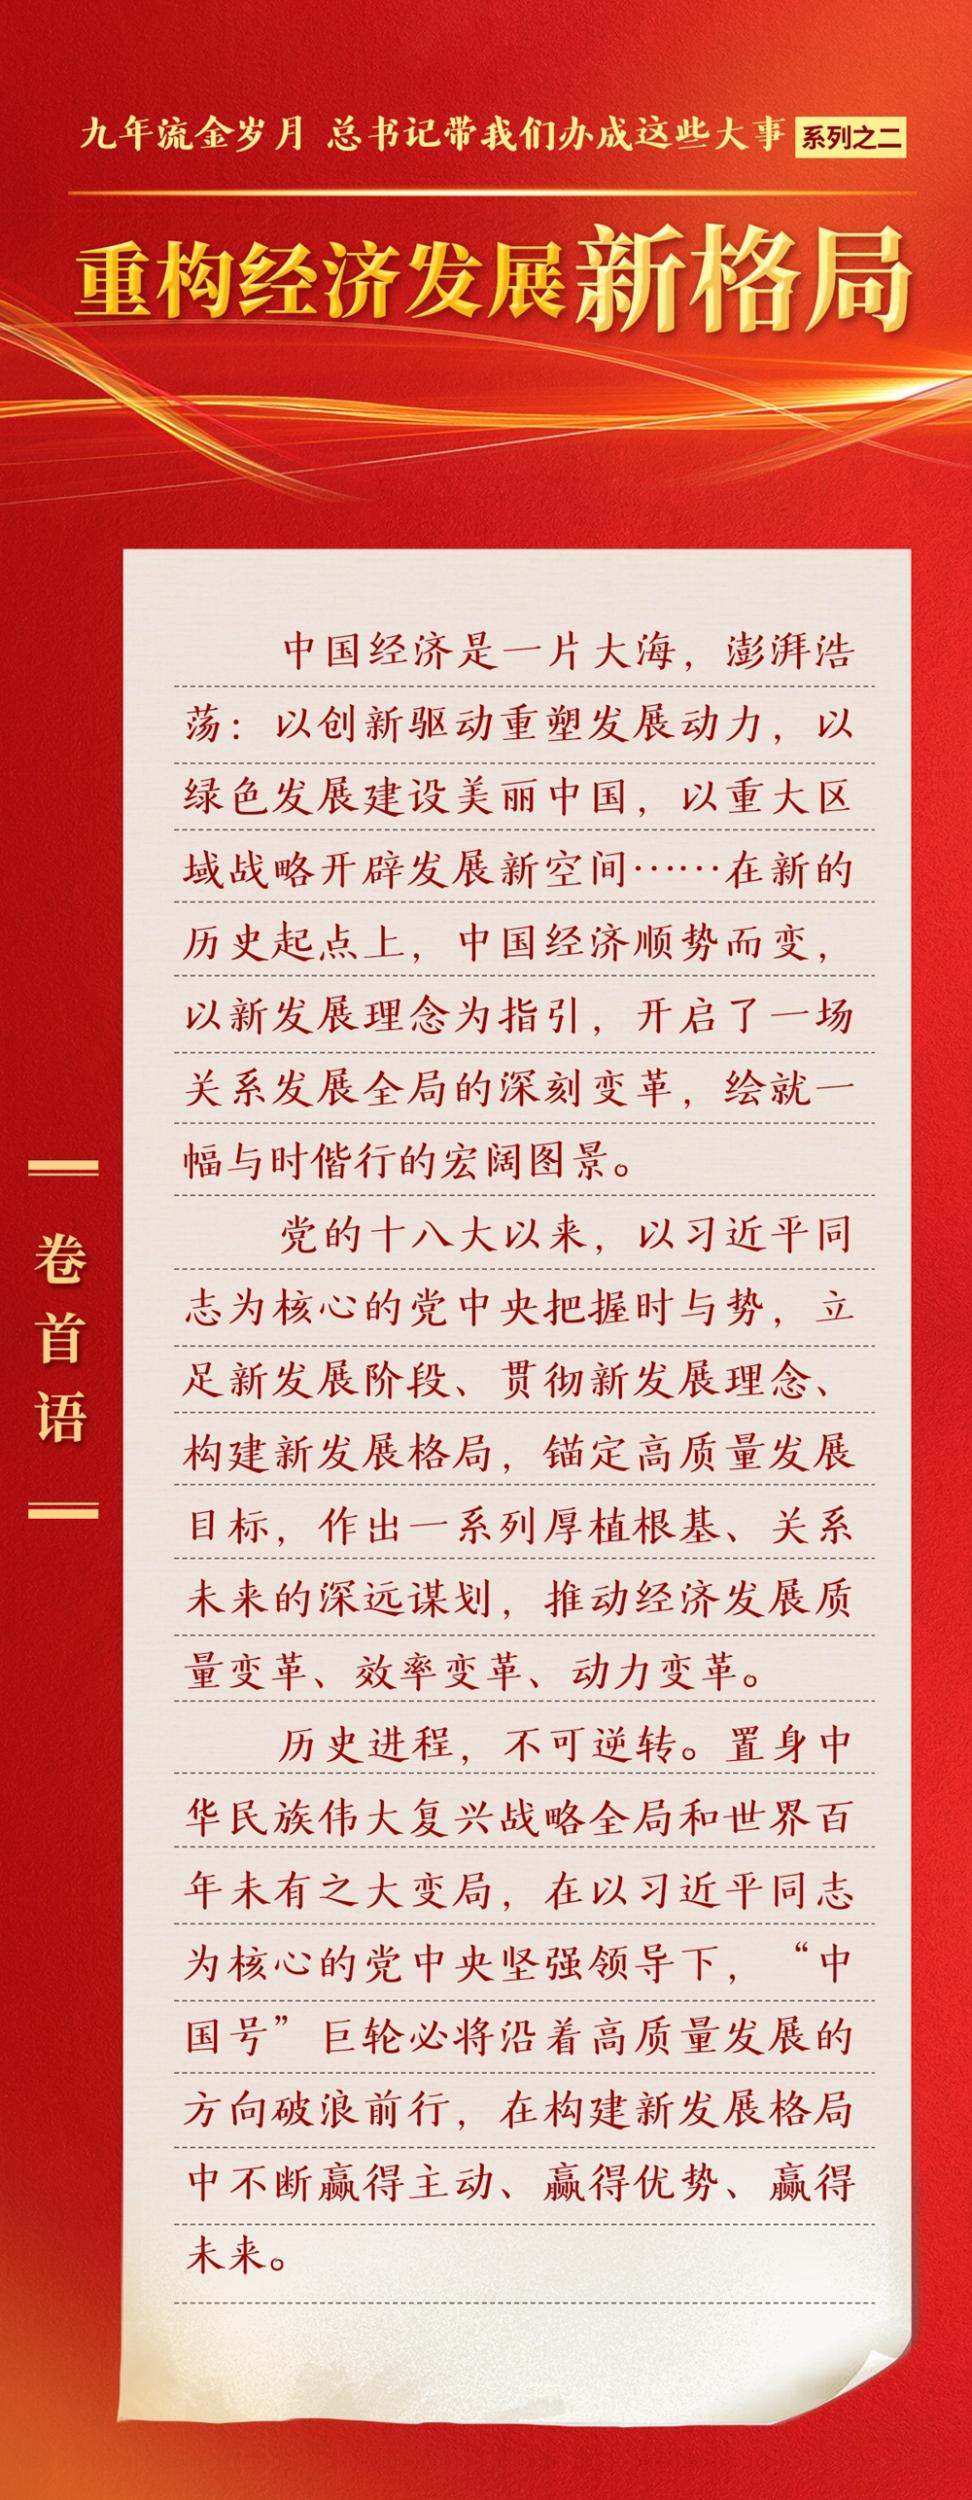 九年流金岁月 总书记带我们办成这些大事 系列之二
重构经济发展新格局
卷首语
中国经济是一片大海，澎湃浩
荡：以创新驱动重塑发展动力，以
绿色发展建设美丽中国，以重大区
域战略开辟发展新空间……在新的
历史起点上，中国经济顺势而变，
以新发展理念为指引，开启了一场
关系发展全局的深刻变革，绘就一
幅与时偕行的宏阔图景。
党的十八大以来，以习近平同
志为核心的党中央把握时与势，立
足新发展阶段、贯彻新发展理念、
构建新发展格局，锚定高质量发展
目标，作出一系列厚植根基、关系
未来的深远谋划，推动经济发展质
量变革、效率变革、动力变革。
历史进程，不可逆转。置身中
华民族伟大复兴战略全局和世界百
年未有之大变局，在以习近平同志
为核心的党中央坚强领导下，“中
国号”巨轮必将沿着高质量发展的
方向破浪前行，在构建新发展格局
中不断赢得主动、赢得优势、赢得
未来。